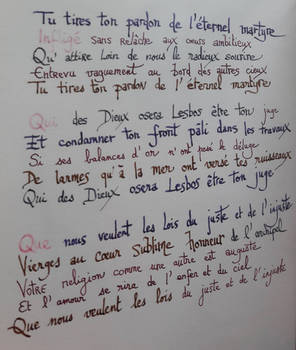 Tu tires ton pardon de l'éternel martyre
Infligé sans relâche aux cœurs ambitieux
Qu'attire loin de nous le radieux sourire
Entrevu vaguement au bord des autres cieux
Tu tires ton pardon de l'éternel martyre
Qui des Dieux osera Lesbos être ton juge
Et condamner ton front pâli dans les travaux
Si ses balances d'or n'ont pesé le déluge
De larmes qu'à la mer ont versé tes ruisseaux
Qui des Dieux osera Lesbos être ton juge
Que nous veulent les lois du juste et de l'injuste
Vierges au cœur Sublime honneur de l'archipel
Votre religion comme une autre est auguste
Et l'amour se rira de l'enfer et du ciel
Que nous veulent les lois du juste et de l'injuste